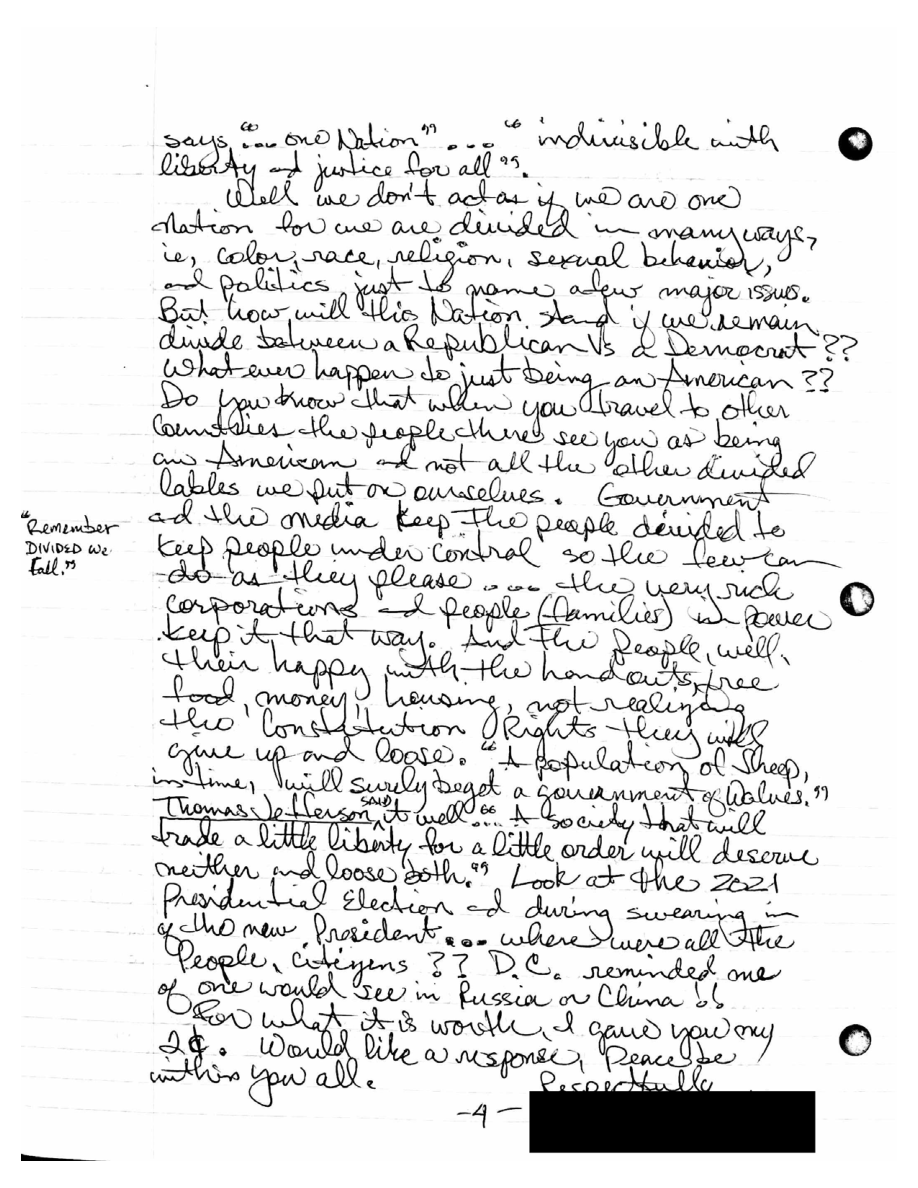 says "... one Nation" ... "indivisible with
liberty and justice for all".
Well we don't act as if we are one
Nation for we are divided in many ways,
ie, color, race, religion, sexual behavior,
and politics just to name a few major issues.
But how will this Nation stand if we remain
divide between a Republican Vs a Democrat??
What ever happen to just being an American??
Do you know that when you travel to other
Countries the people there see you as being
an American and not all the other divided
lables we put on ourselves. Government
ad the media keep the people divided to
keep people under control so the few can
do as they please .... the very rich
corporations and people (families) in power
keep it that way. And the People, well,
their happy with the handouts, free
food, money, housing, not realizing
the Constitution Rights they will
give up and loose. "A population of Sheep,
in time, will surely beget a government of Wolves."
Thomas Jefferson SAID it well "... A Society that will
trade a little liberty for a little order will deserve
neither and loose both." Look at the 2021
Presidential Election and during swearing in
of the new President.... where were all the
People, citizens ?? D.C. reminded me
of one would see in Russia or China !!
For what it is worth, I gave you my
2¢. Would like a response, Peace be
within you all.
Respectfully
"Remember
DIVIDED We
Fall."
-4-